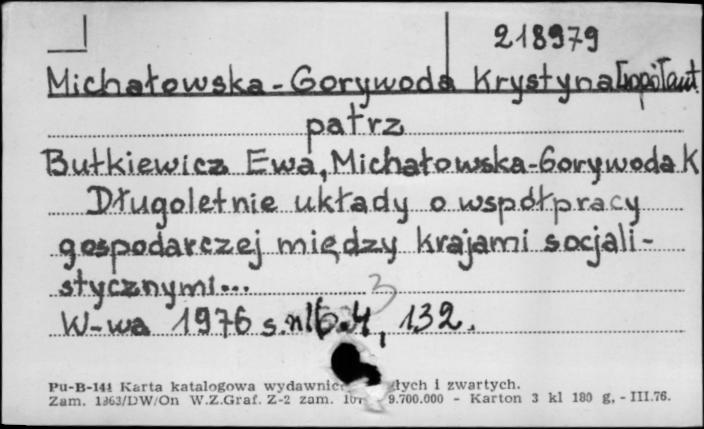 218979
Michałowska-Gorywoda Krystyna [współaut.
patrz
Butkiewicz Ewa, Michałowska-Gorywoda K
Długoletnie układy o współpracy
gospodarczej między krajami socjali-
stycznymi...
3
W-wa 1976 s. 4, 132.
Pu-B-144 Karta katalogowa wydawnic łych i zwartych.
Zam. 1363/DW/On W.Z.Graf. Z-2 zam. 9.700.000 - Karton 3 kl 180 g. - III.76.